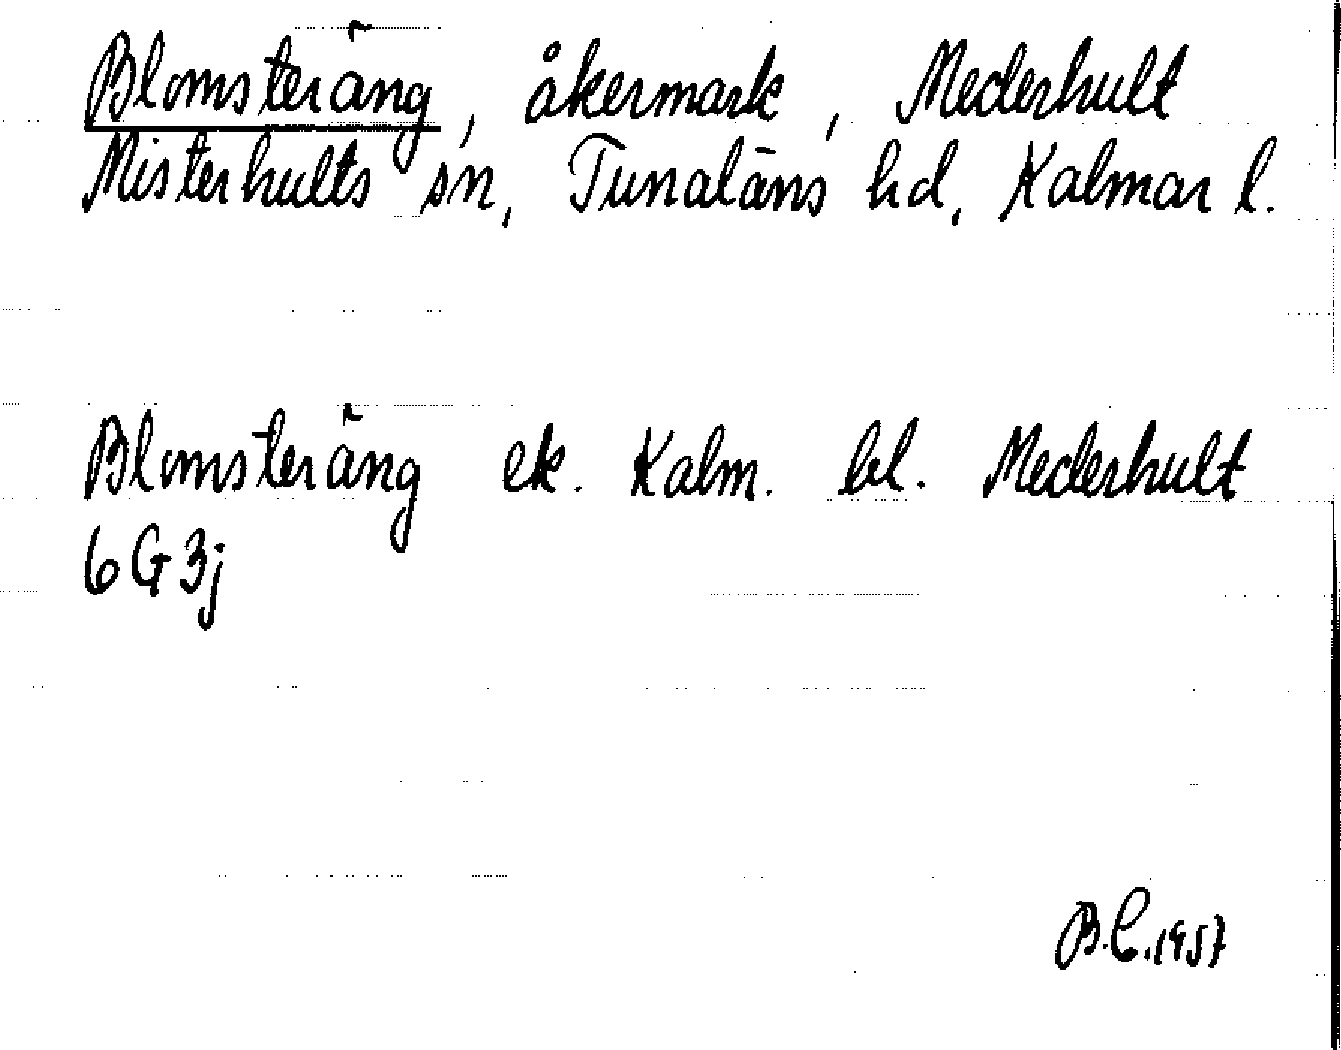 Blomsteräng, åkermark, Mederhult
Misterhults sn, Tunaläns hd, Kalmar l.
Blomsteräng ek. Kalm. bl. Mederhult
6G3j
B.C. 1957